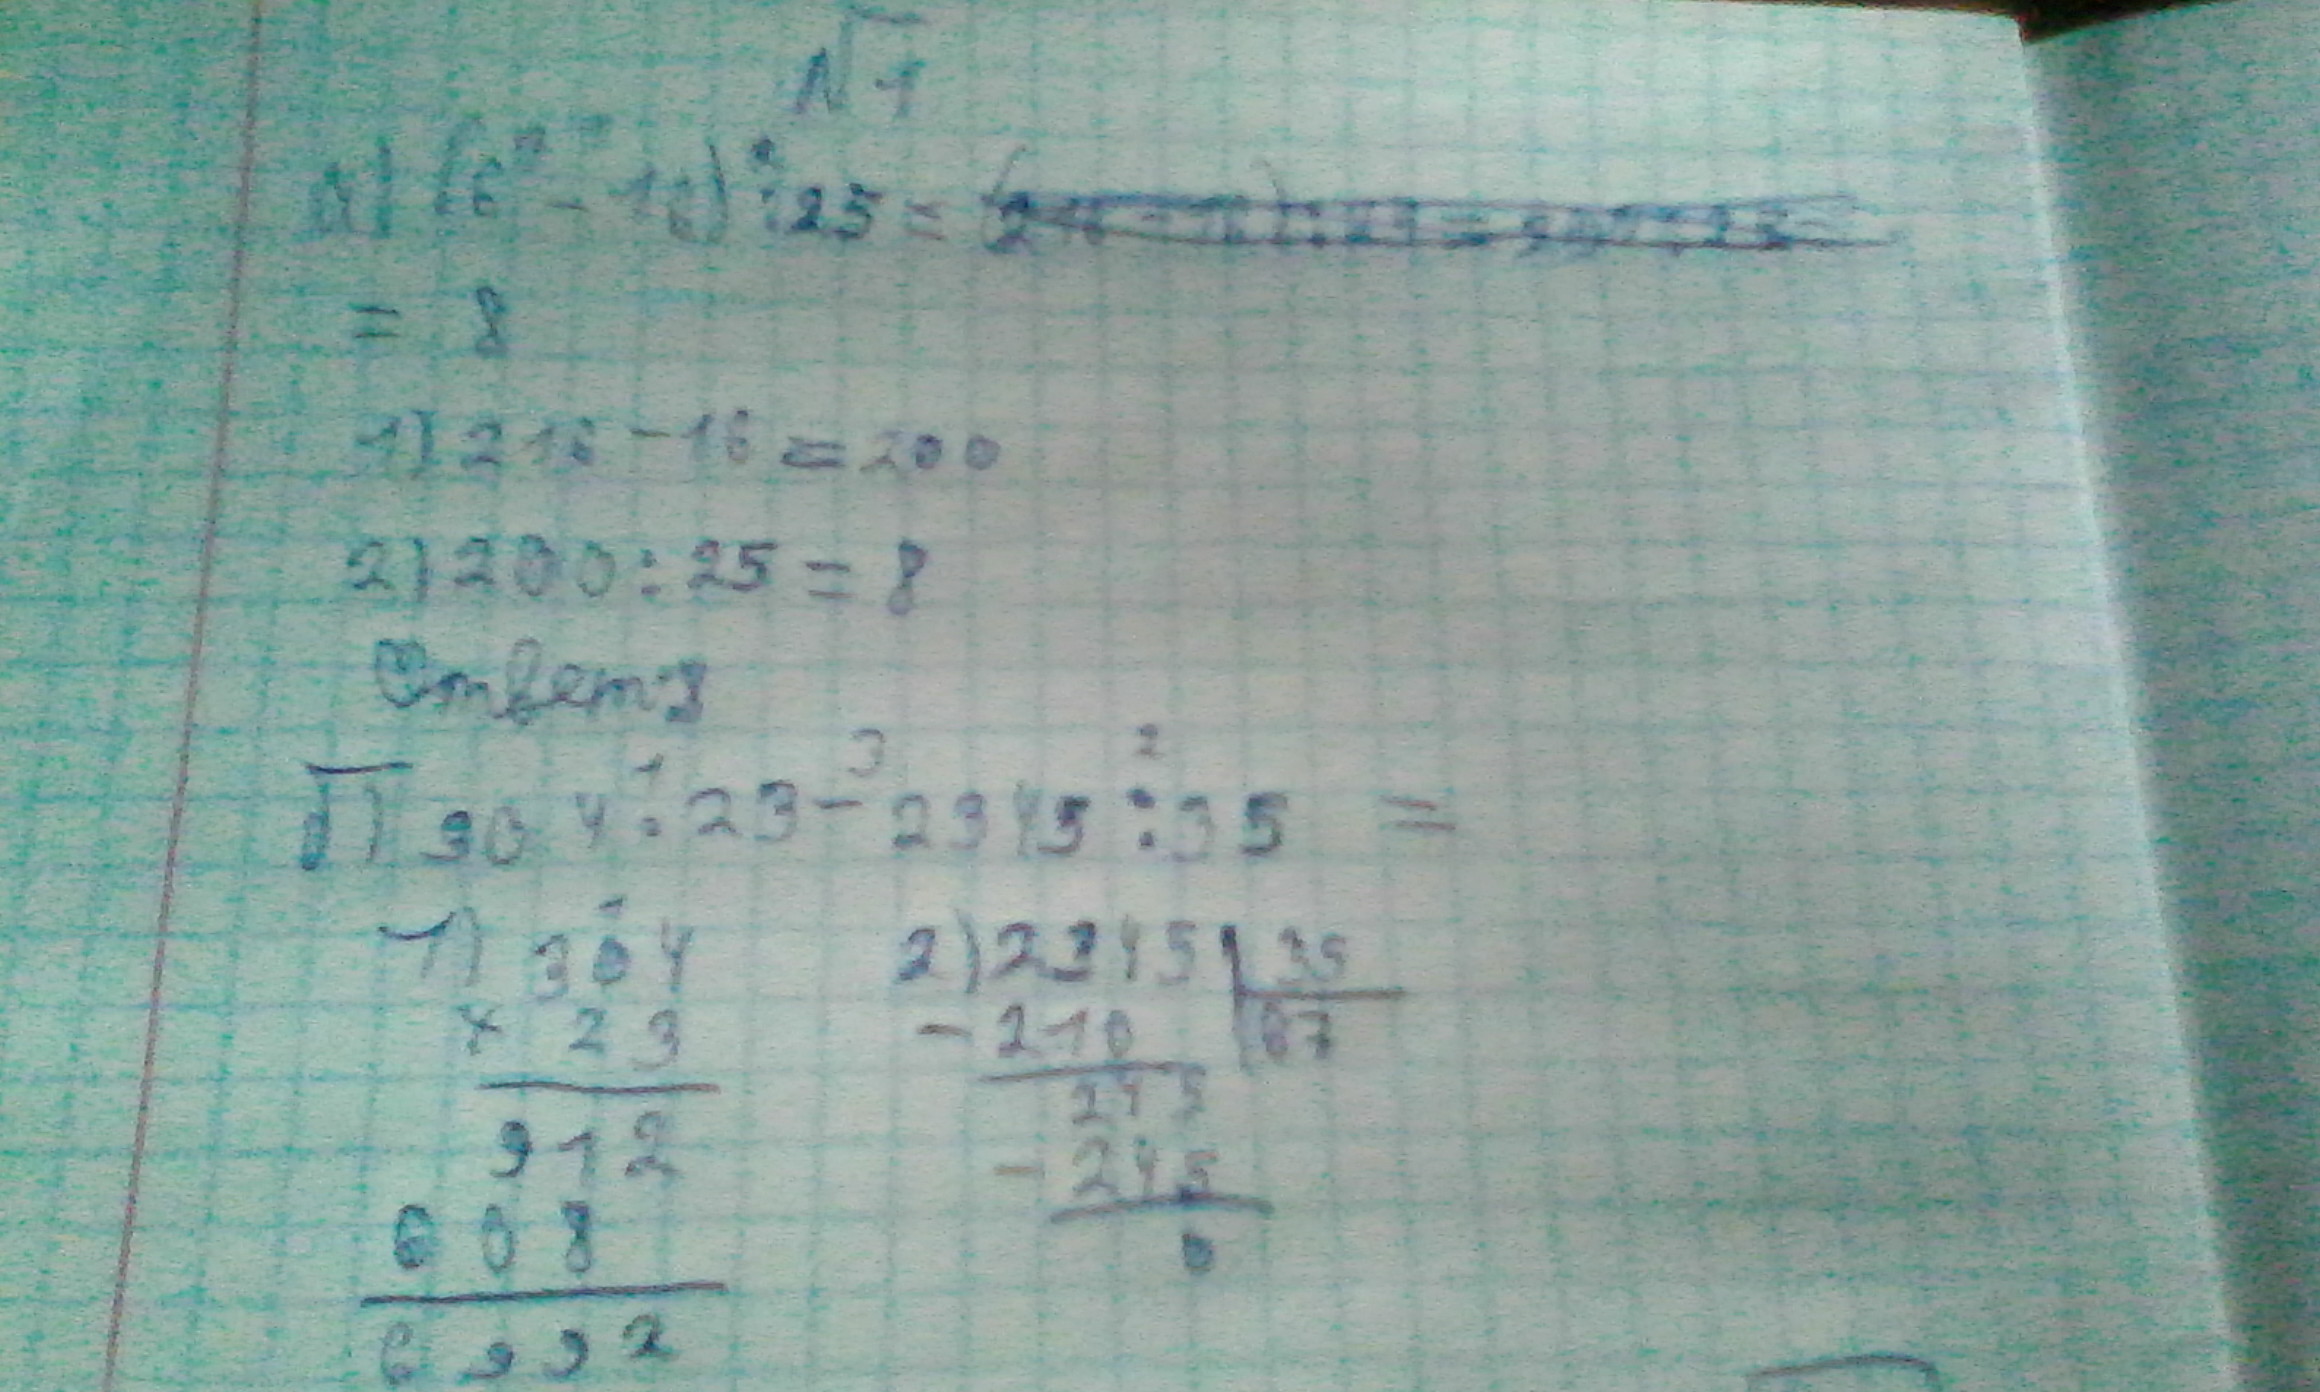 №1
а) (6 - 16) : 25 =
= 8
1) 216 - 16 = 200
2) 200 : 25 = 8
Ответ: 8
б) 304 : 23 - 2345 : 35 =
1) 304
× 23
912
608
6992
2) 2345 | 35
- 210 67
245
- 245
0